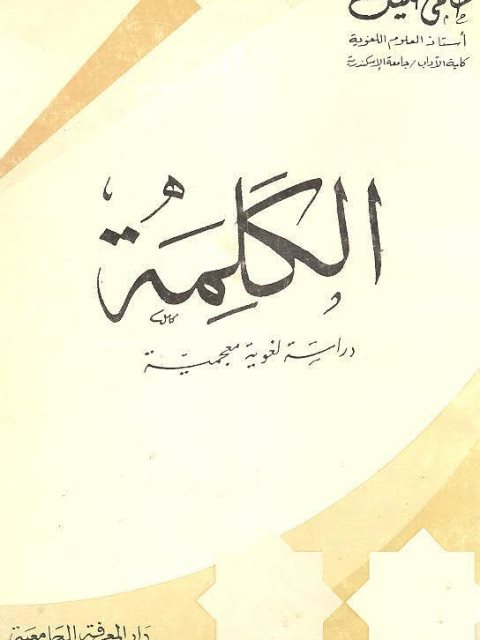 أستاذ العلوم اللغوية
كلية الآداب/جامعة الإسكندرية
الكَلِمَةُ
دراسة لغوية معجمية
دار المعرفة الجامعية